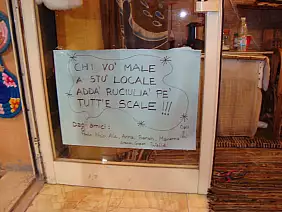 CHI VO' MALE
A STU' LOCALE
ADDA' RUCIULIA' PE'
TUTT'E SCALE !!!
Dagli amici: